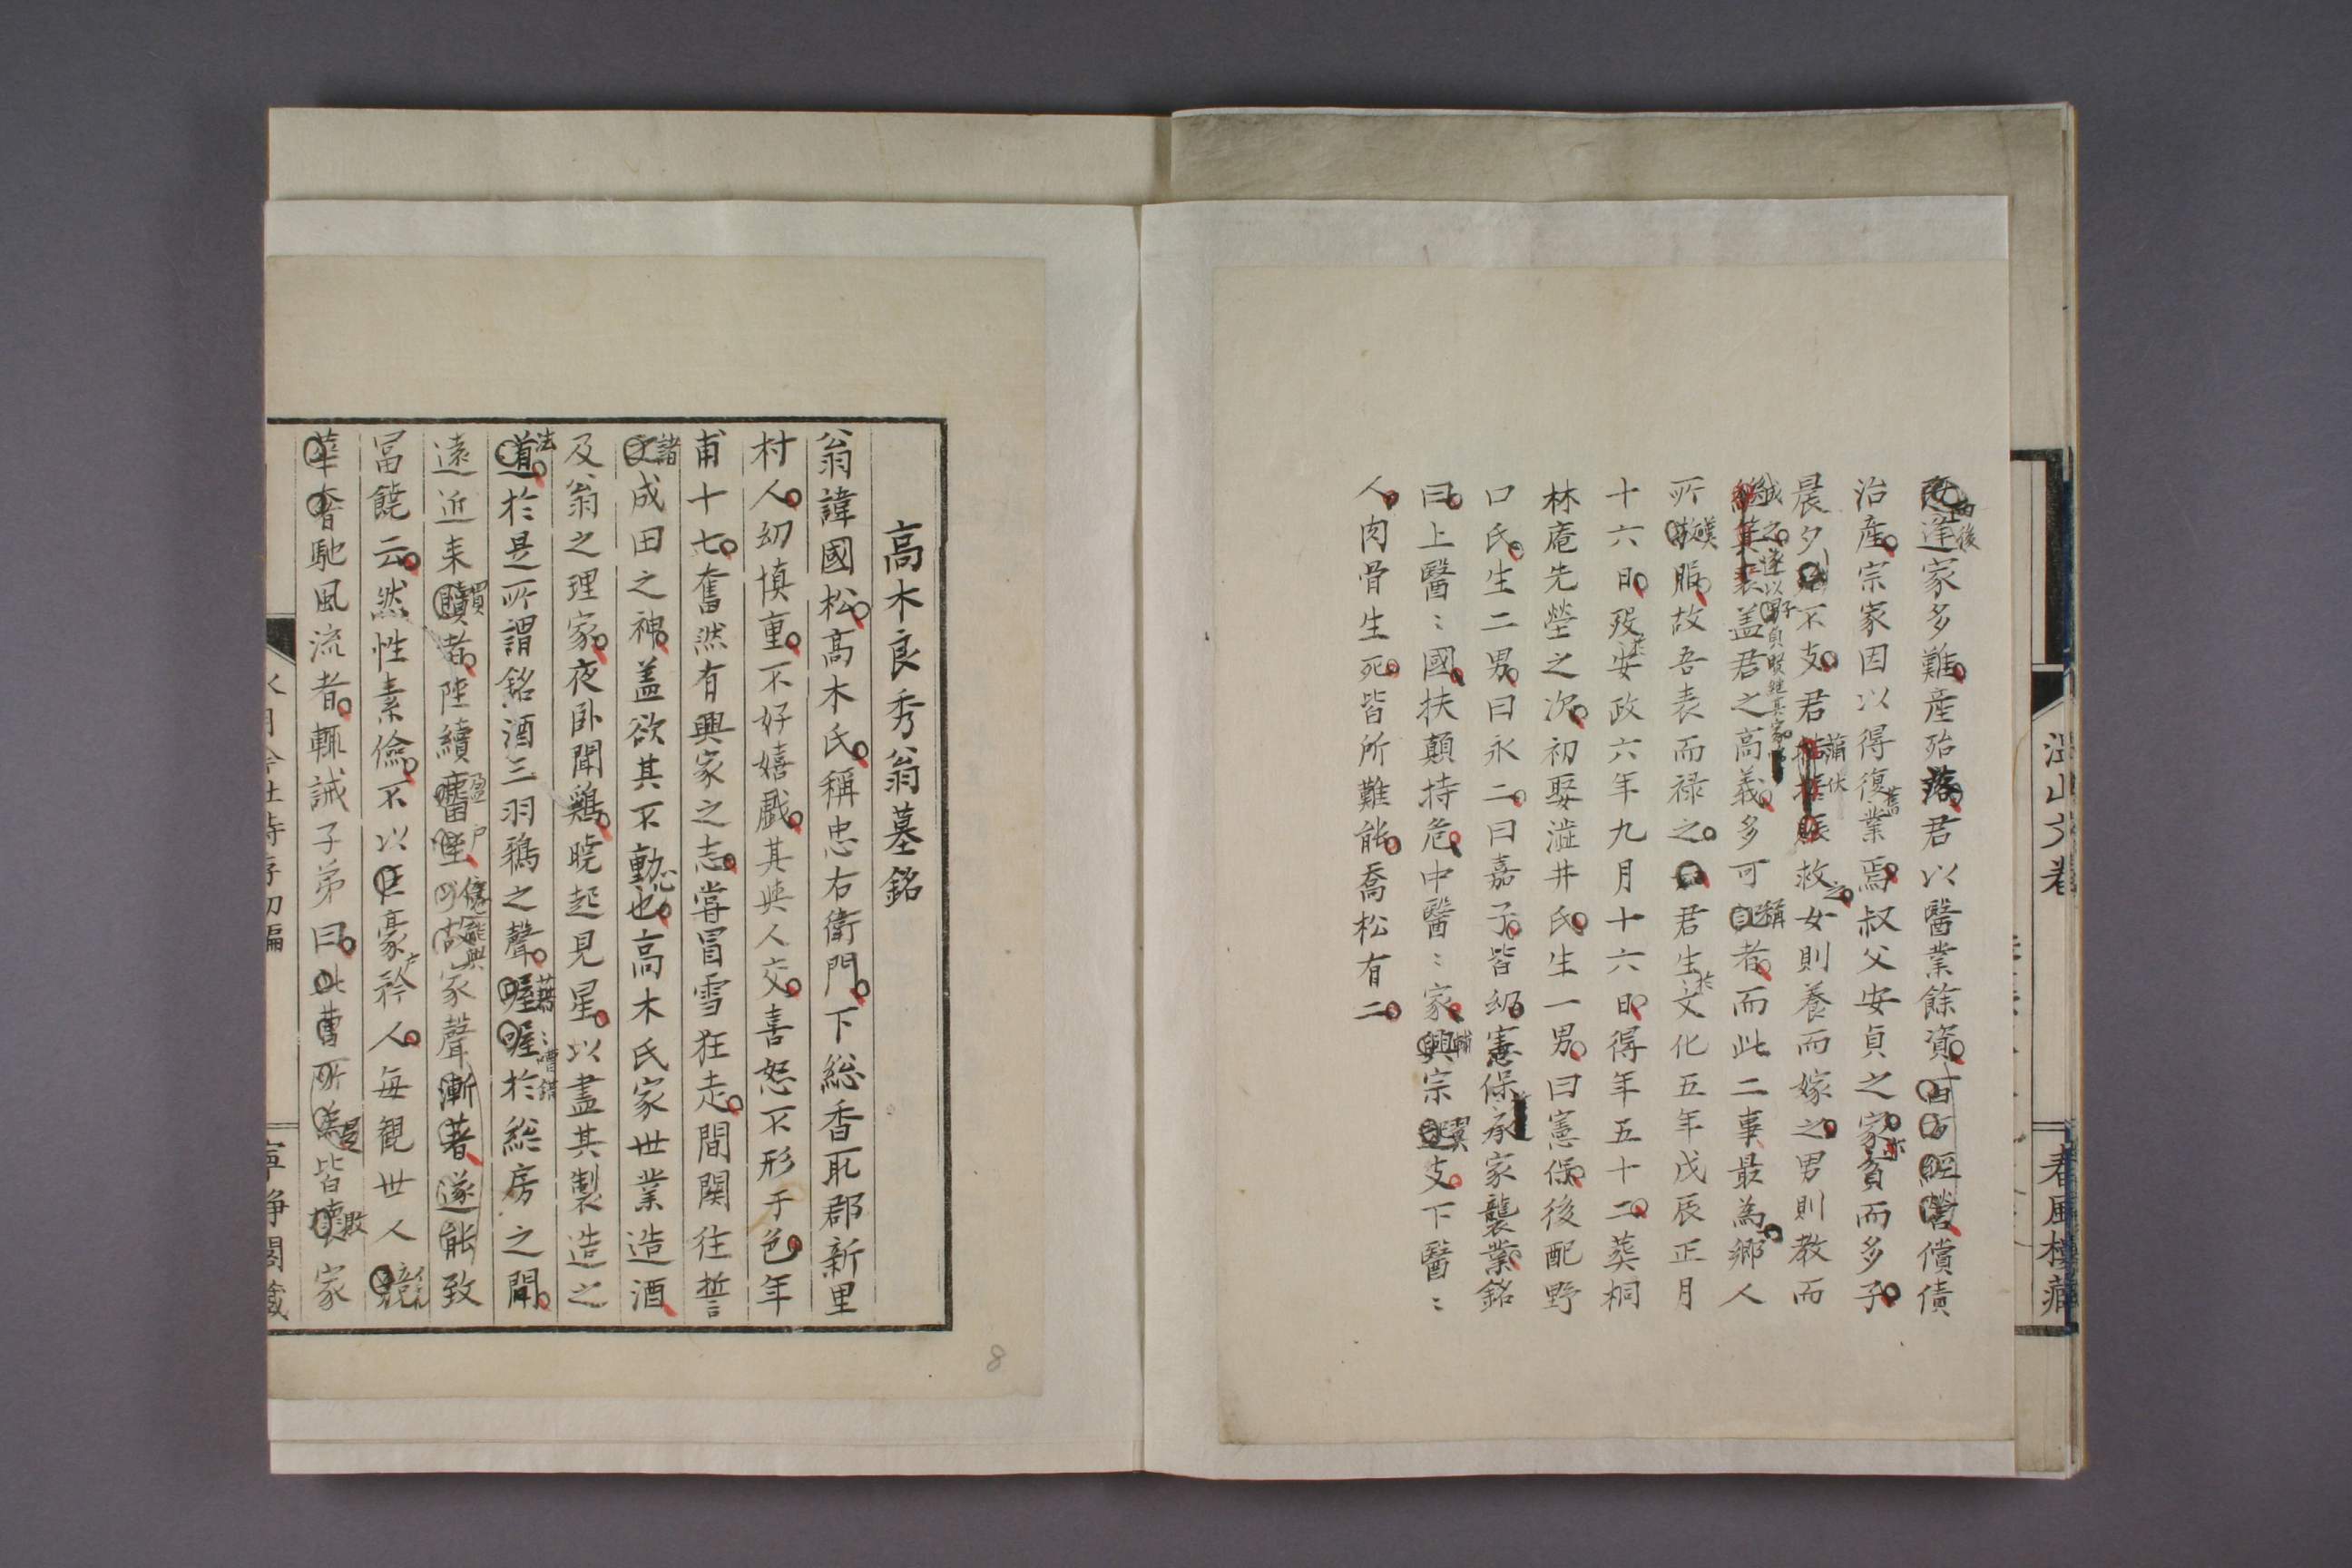 逢家多難産殆落君以醫業餘資百方經營償債
治産宗家因以得復業焉叔父安貞之家貧而多子
晨夕不支君賑救之女則養而嫁之男則教而
盖君之高義多可稱者而此二事最為郷人
所嘆服故吾表而禄之君生於文化五年戊辰正月
十六日歿於安政六年九月十六日得年五十二葬桐
林庵先塋之次初娶澁井氏生一男曰憲保後配野
口氏生二男曰永二曰嘉子皆幼憲保承家襲業銘
曰上醫〻國扶顛持危中醫〻家興宗支下醫〻
人肉骨生死皆所難能喬松有二
高木良秀翁墓銘
翁諱國松高木氏稱忠右衛門下総香取郡新里
村人幼慎重不好嬉戯其與人交喜怒不形于色年
甫十七奮然有興家之志嘗冒雪狂走間関往誓
諸成田之神盖欲其不動心也高木氏家世業造酒
及翁之理家夜卧聞鶏暁起見星以盡其製造之
法於是所謂銘酒三羽鴉之聲藉〻嘈於総房之間
遠近来買者陸續家聲漸著遂能致
冨饒云然性素儉不以豪矜人毎観世人競
華奢馳風流者輒誡子弟曰此曹所為皆敗家
春風樓藏